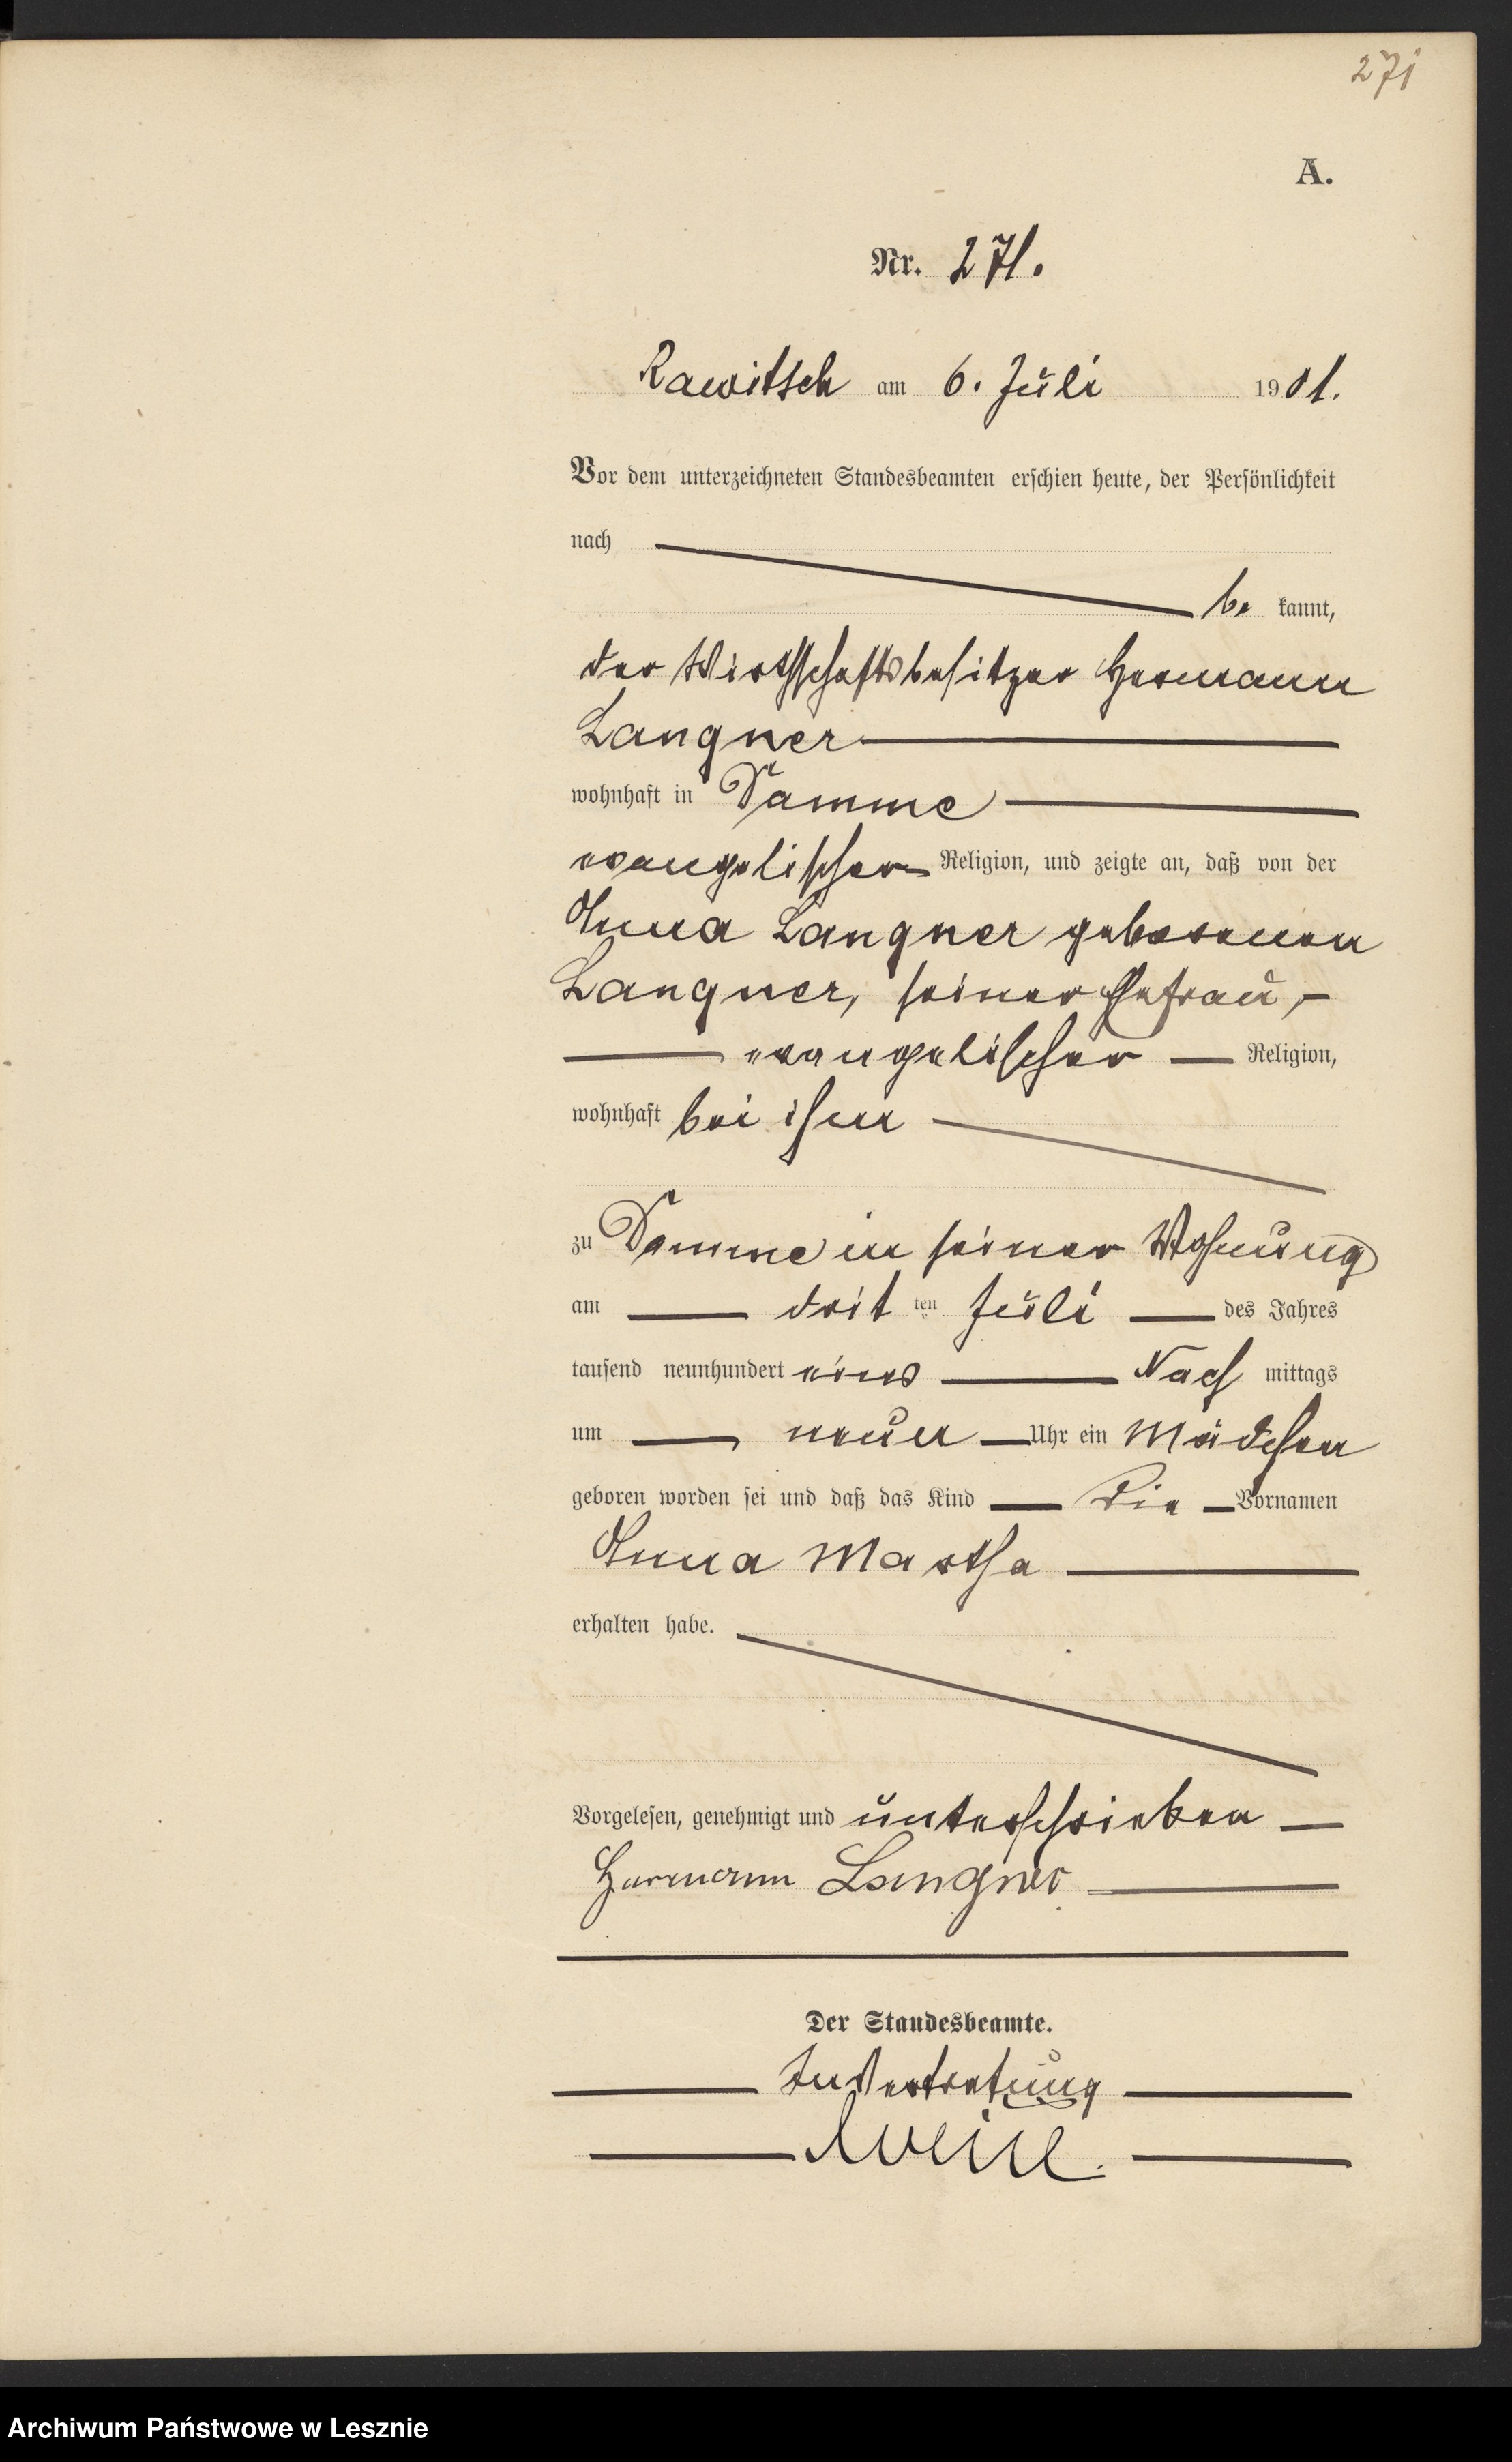 271
A.
Nr. 271.
Rawitsch am 6. Juli 1901.
Vor dem unterzeichneten Standesbeamten erschien heute, der Persönlichkeit
nach
be kannt,
der Wirthschaftsbesitzer Hermann
Langner
wohnhaft in Damme
evangelischer Religion, und zeigte an, daß von der
Anna Langner geborenen
Langner, seiner Ehefrau,
evangelischer Religion,
wohnhaft bei ihm
zu Damme in seiner Wohnung
am dritten Juli des Jahres
tausend neunhundert eins Nach mittags
um neun Uhr ein Mädchen
geboren worden sei und daß das Kind die Vornamen
Anna Martha
erhalten habe.
Vorgelesen, genehmigt und unterschrieben
Hermann Langner
Der Standesbeamte.
In Vertretung
Archiwum Państwowe w Lesznie